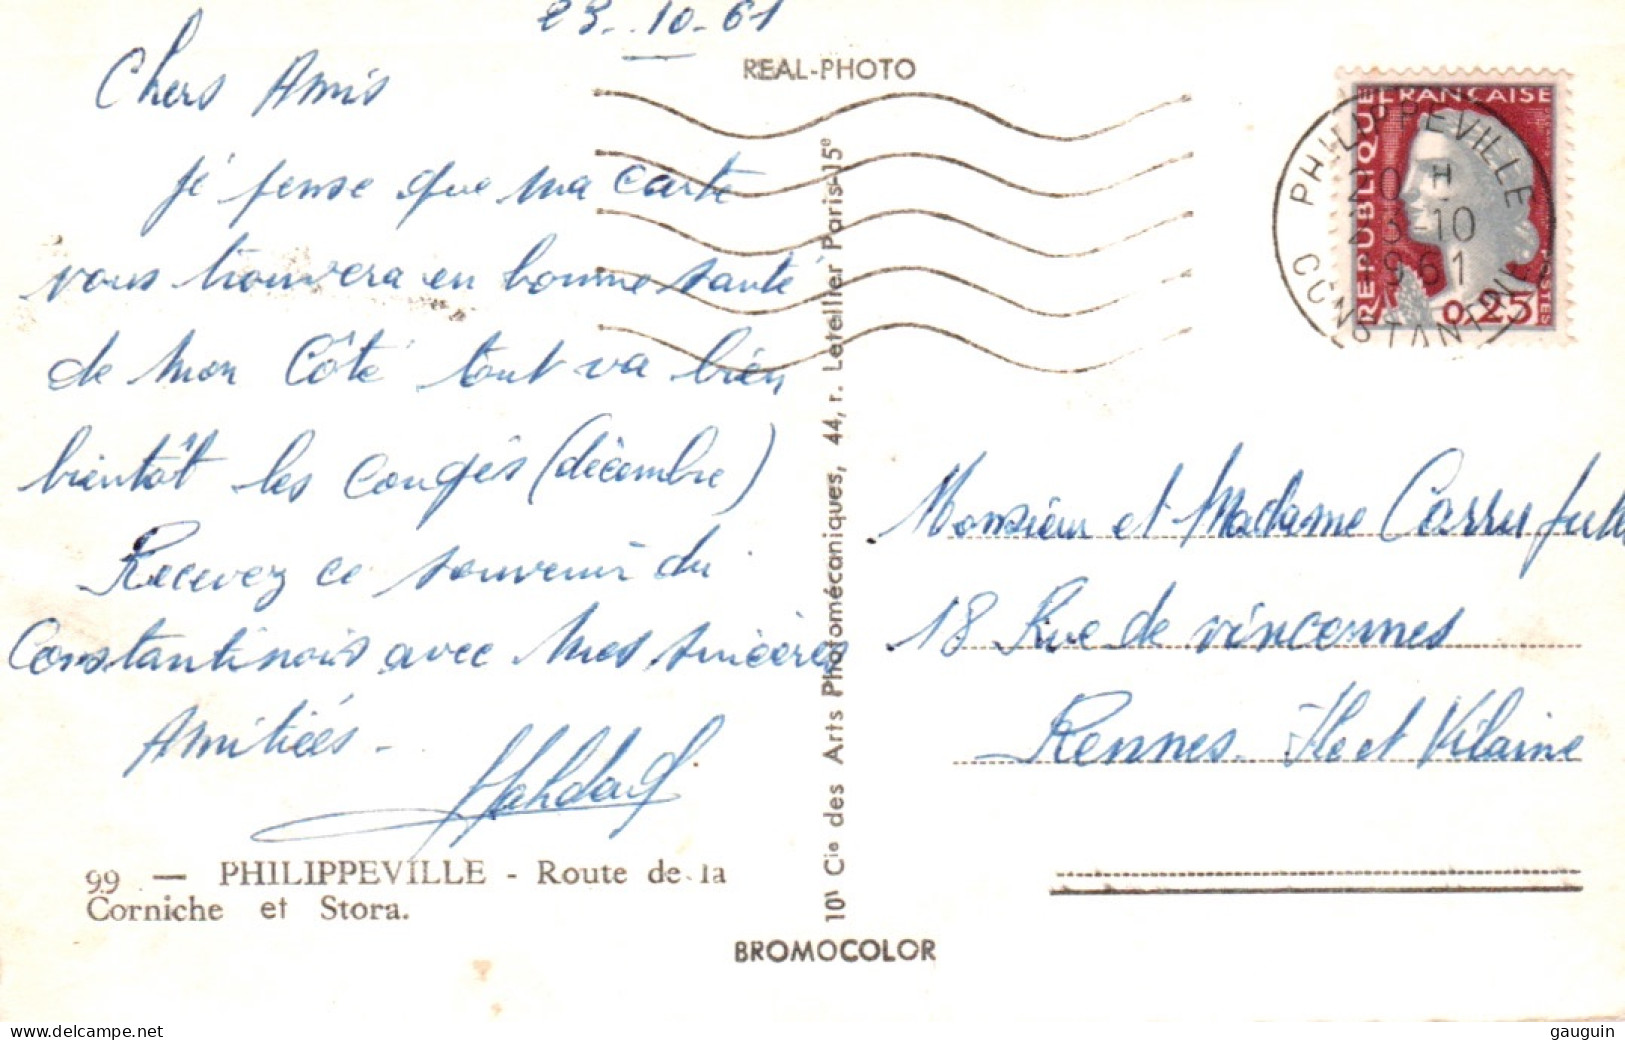 23-10-61
Chers Amis
je pense que ma carte
vous trouvera en bonne santé
de mon Côté tout va bien
bientôt les congés (décembre)
Recevez ce souvenir du
Constantinois avec mes sincères
Amitiés-
99 — PHILIPPEVILLE - Route de la
Corniche et Stora.
REAL-PHOTO
Cie des Arts Photomécaniques, 44, r. Letellier Paris-15e
BROMOCOLOR
REPUBLIQUE FRANÇAISE
0,25
POSTES
PHILIPPEVILLE
20 H
23-10
1961
CONSTANTINE
Monsieur et Madame
18 Rue de vincennes
Rennes. Ile et Vilaine
www.delcampe.net
gauguin